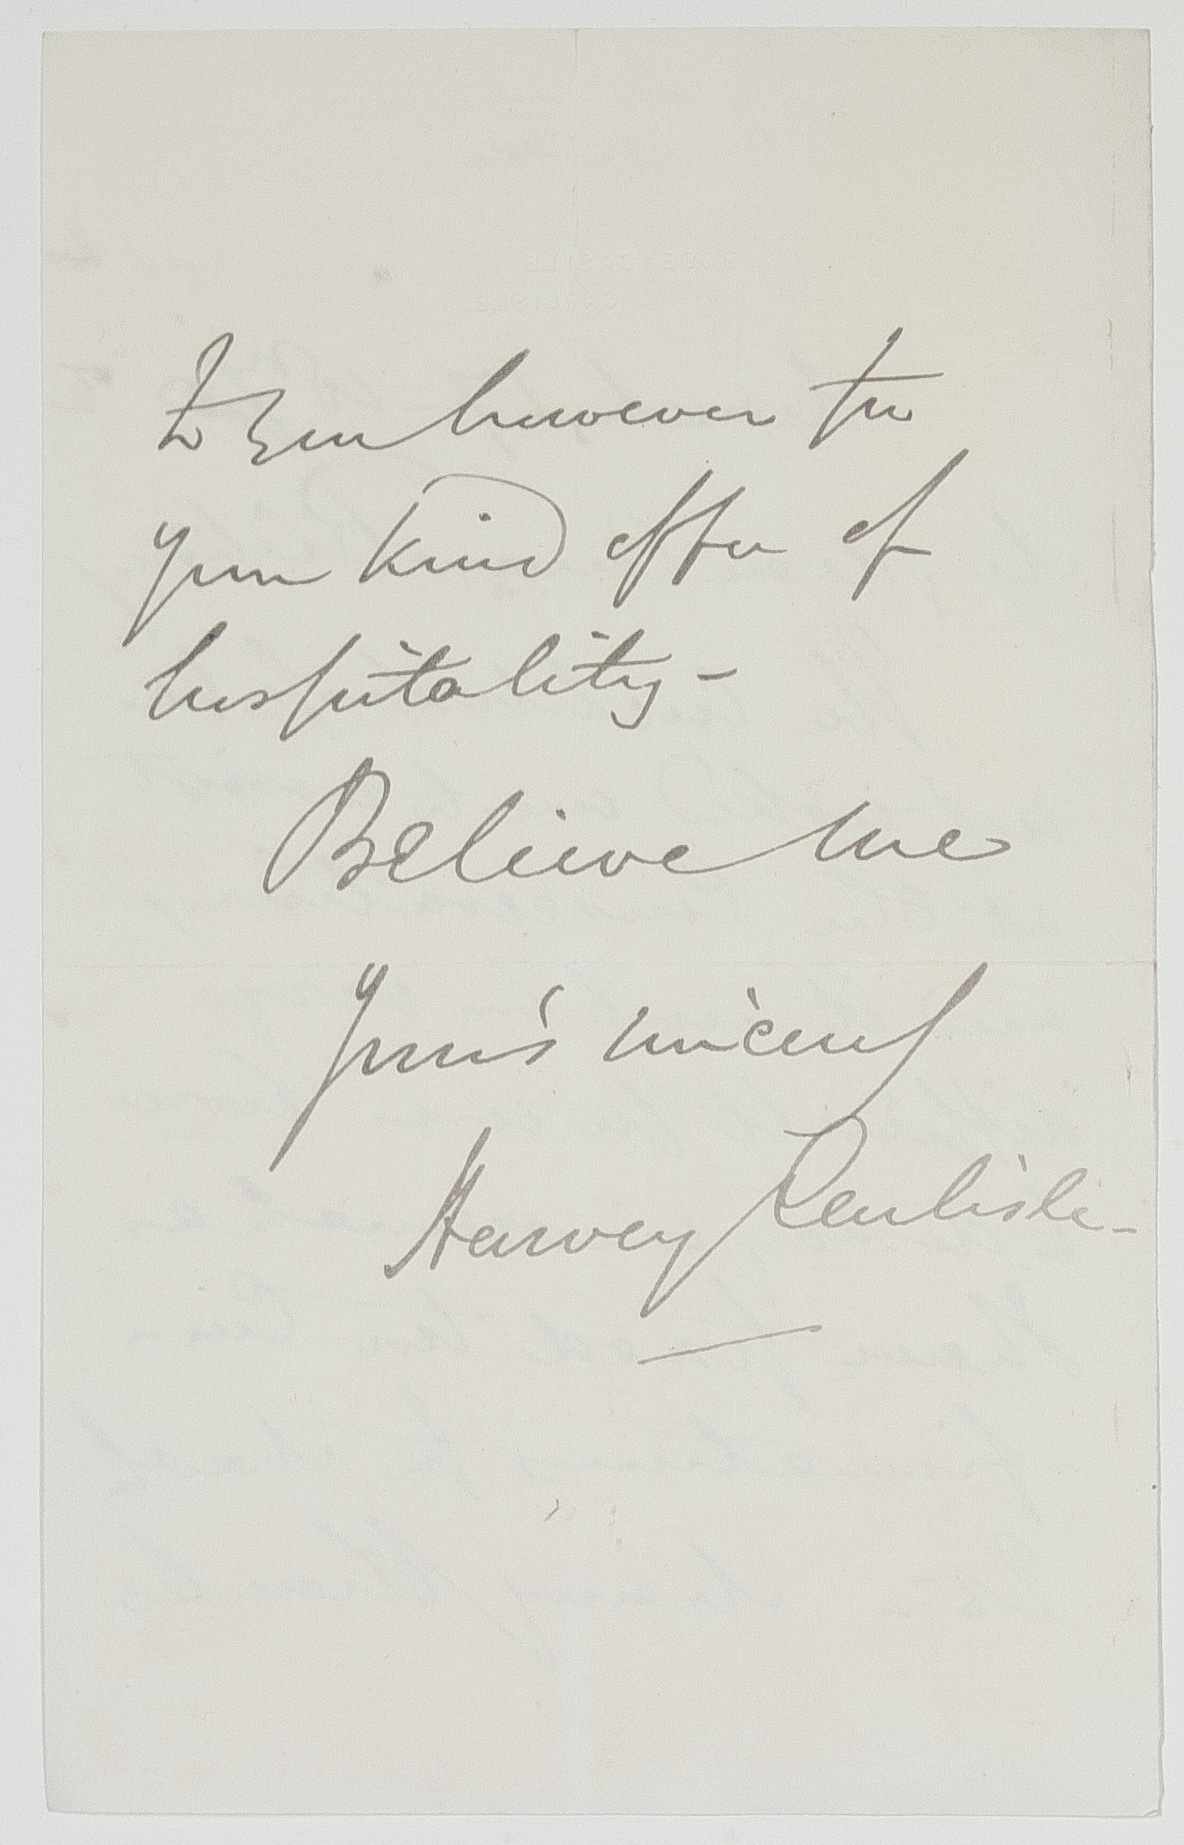 to you however for
your kind offer of
hospitality -
Believe me
Yours sincerely
Harvey Carlisle -